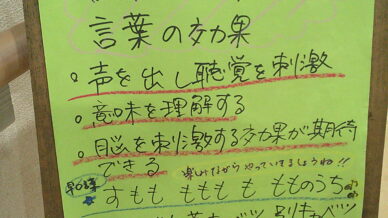 言葉の効果
。声を出し聴覚を刺激
。意味を理解する
。脳を刺激する効果が期待
できる
楽しみながら やっていきましょうね!!
早口言葉
すもも ももも も もものうち